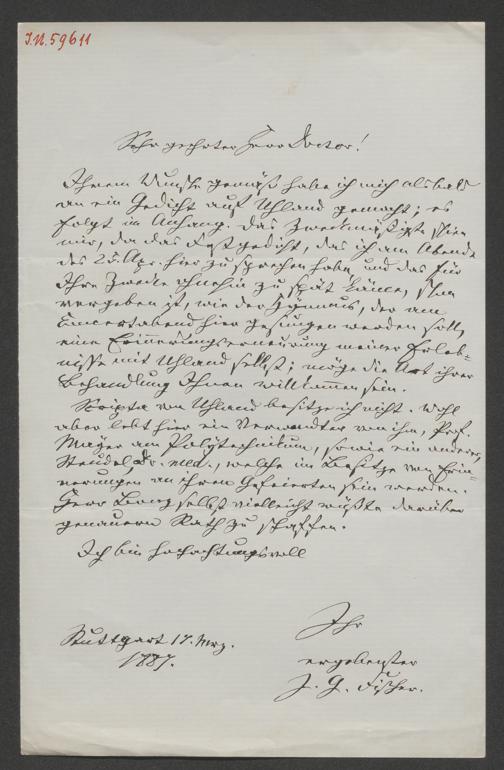 I.N. 59611
Sehr geehrter Herr Doctor!
Ihrem Wunsche gemäß habe ich mich alsbald
an ein Gedicht auf Uhland gemacht; es
folgt im Anhang. Das Zweckmäßigste schien
mir, da das Festgedicht, das ich am Abende
des 25. Apr. hier zu sprechen habe und das für
Ihre Zwecke ohnehin zu spät käme, schon
vergeben ist, wie der Hymnus, der am
Concertabend hier gesungen werden soll,
eine Erinnerungserneuerung meiner Erleb-
nisse mit Uhland selbst; möge die Art ihrer
Behandlung Ihnen willkommen sein.
Scripta von Uhland besitze ich nicht. Wohl
aber lebt hier ein Verwandter von ihm, Prof.
Mayer am Polytechnikum, sowie ein anderer,
Steudel Dr. med., welche im Besitze von Erin-
nerungen an ihren Gefeierten sein werden.
Herr Bonz selbst vielleicht wüßte darüber
genauern Rath zu schaffen.
Ich bin hochachtungsvoll
Ihr
Stuttgart 17. Mrz.
1887.
ergebenster
J. G. Fischer.